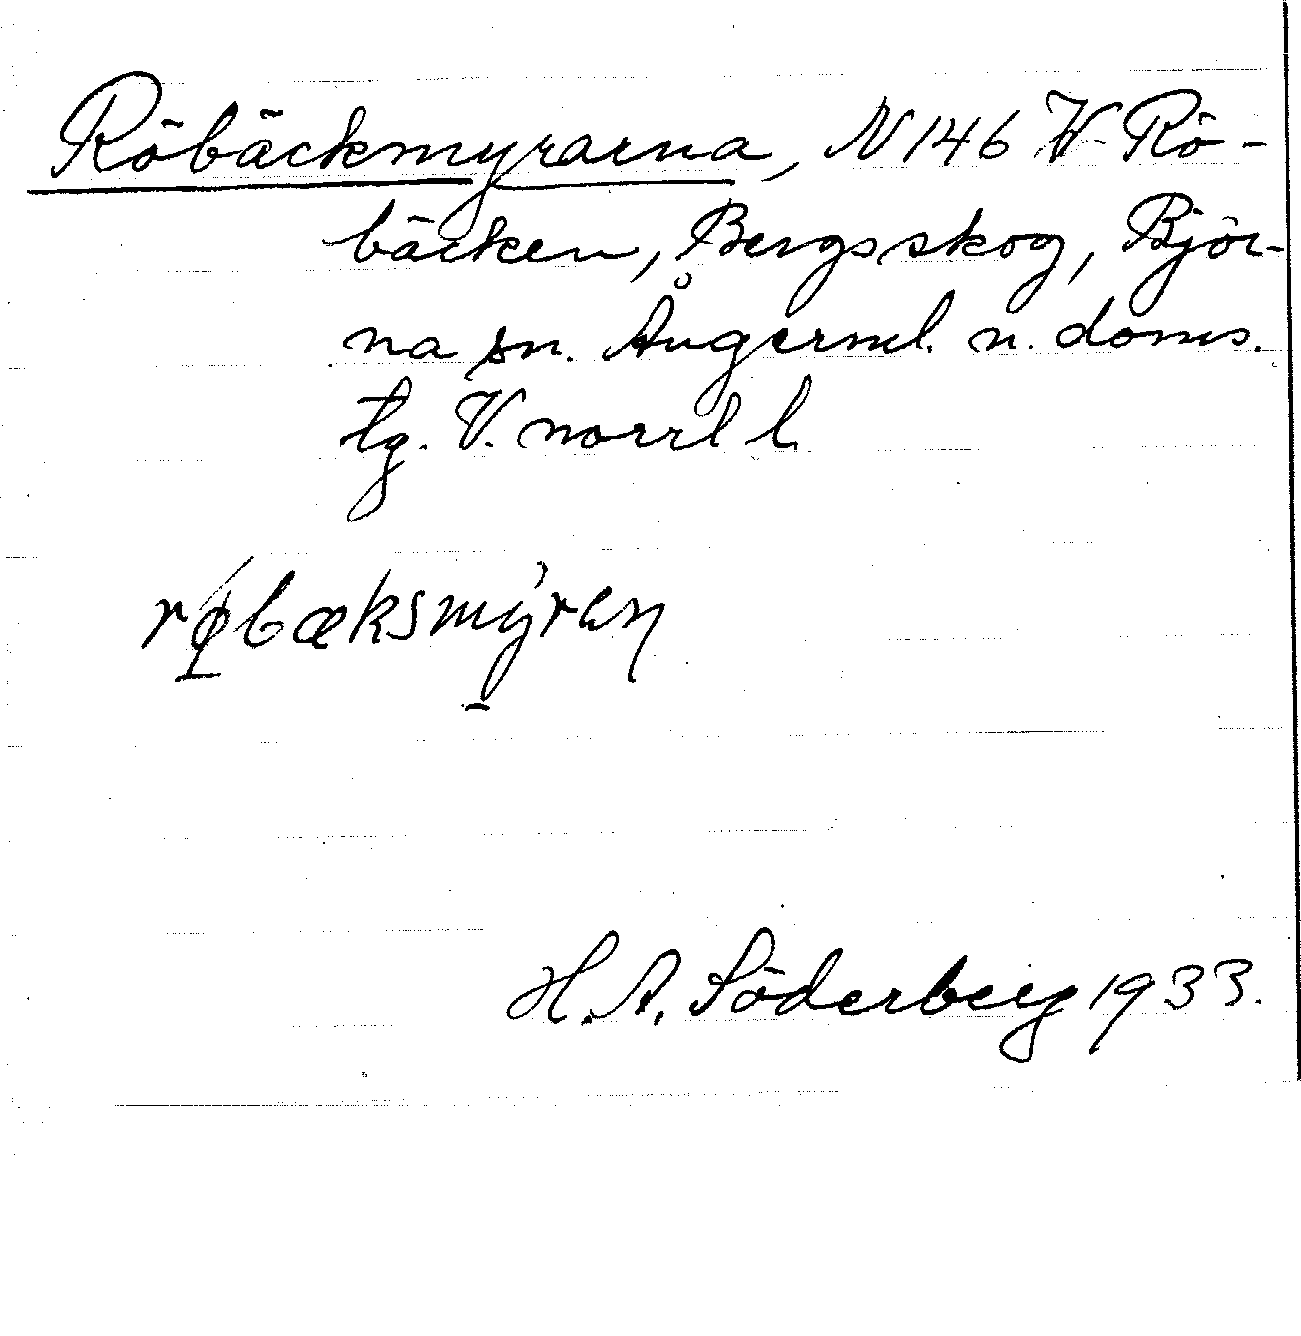 Röbäckmyrarna, N 146 V Rö-
bäcken, Bergsskog, Björ-
na sn. Ångerml. n. doms.
tg. V. norrl l.
røbæksmyren
H. A. Söderberg 1933.